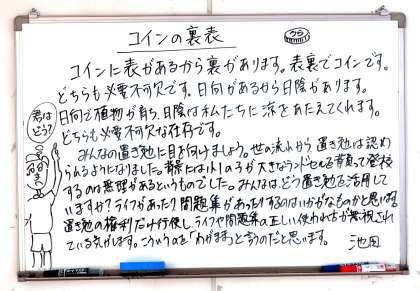 コインの裏表
ウラ
コインに表があるから裏があります。表裏でコインです。
どちらも必要不可欠です。日向があるから日陰があります。
日向で植物が育ち、日陰は私たちに涼をあたえてくれます。
どちらも必要不可欠な存在です。
君は
どう?
みんなの置き勉に目を向けましょう。世の流れから置き勉は認め
られるようになりました。背景には小1の子が大きなランドセルを背負って登校
するのは無理があるというものでした。みんなは、どう置き勉を活用して
いますか?ライフがあったり問題集があったりするのはいかがなものかと思います。
置き勉の権利だけ行使し、ライフや問題集の正しい使われ方が無視され
ている気がします。こういうのを「わがまま」と言うのだと思います。
池田